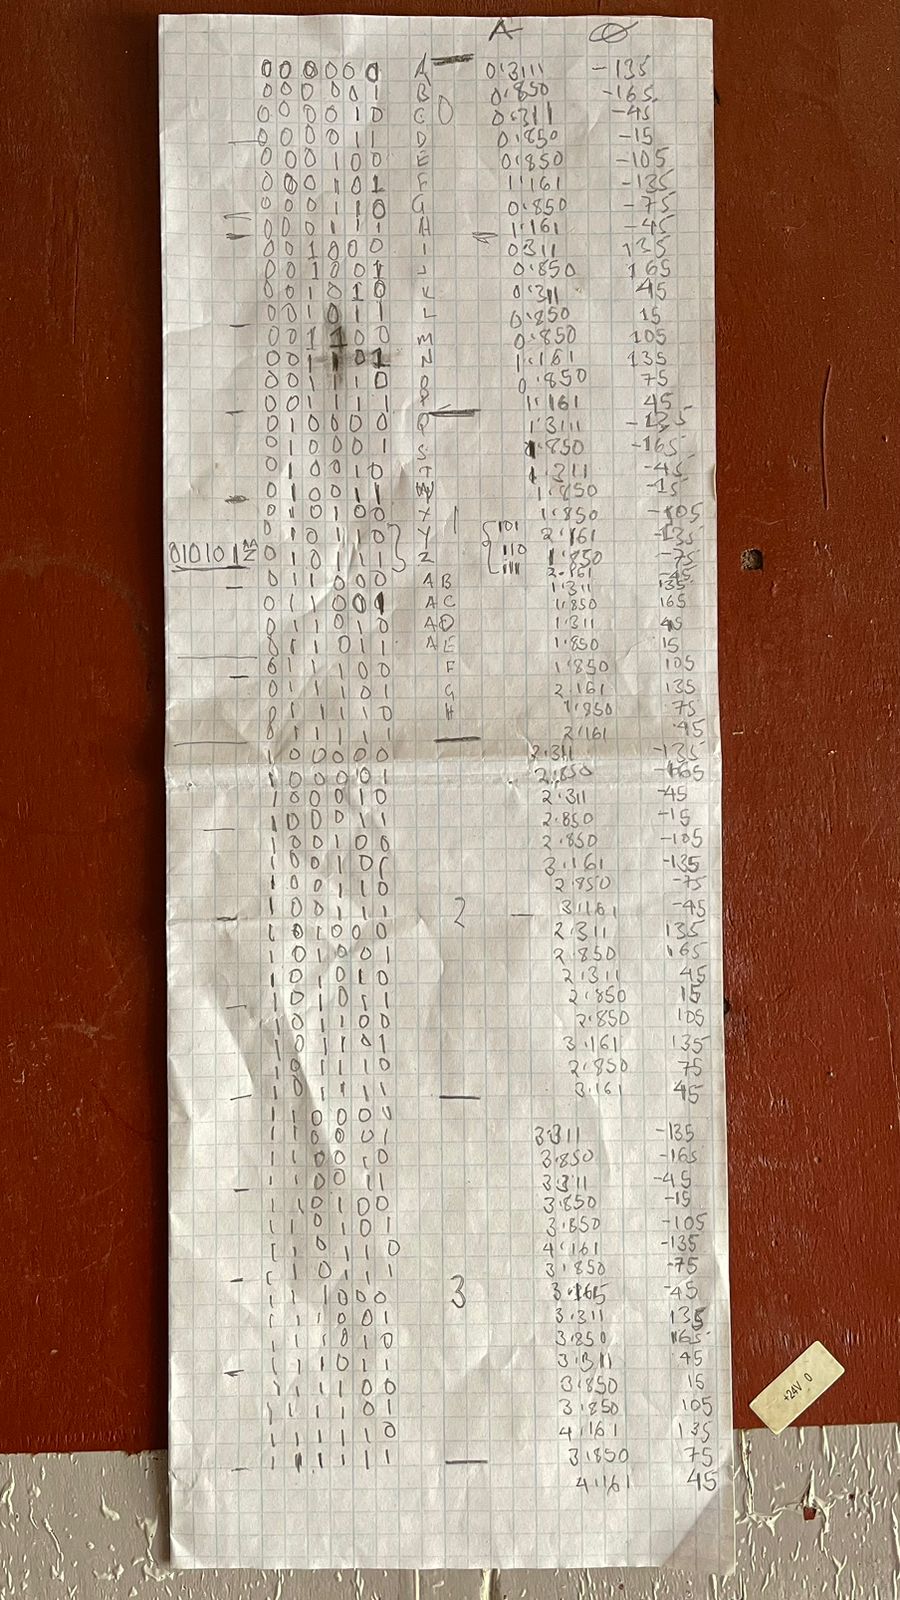 A Ø
0 0 0 0 0 0 A 0.3111 -135
0 0 0 0 0 1 B 0.850 -165
0 0 0 0 1 0 C 0 0.311 -45
0 0 0 0 1 1 D 0.850 -15
0 0 0 1 0 0 E 0.850 -105
0 0 0 1 0 1 F 1.161 -135
0 0 0 1 1 0 G 0.850 -75
0 0 0 1 1 1 H 1.161 -45
0 0 1 0 0 0 I 0311 135
0 0 1 0 0 1 J 0.850 165
0 0 1 0 1 0 K 0.311 45
0 0 1 0 1 1 L 0.850 15
0 0 1 1 0 0 M 0.850 105
0 0 1 1 0 1 N 1.161 135
0 0 1 1 1 0 O 0.850 75
0 0 1 1 1 1 P 1.161 45
0 1 0 0 0 0 Q 1.3111 -135
0 1 0 0 0 1 S 1.850 -165
0 1 0 0 1 0 T 1.311 -45
0 1 0 0 1 1 W 1.850 -15
0 1 0 1 0 0 X 1 1.850 -105
0 1 0 1 1 0 Y 101 2.161 -135
010101 0 1 0 1 1 1 Z 110 1.850 -75
111 2.161 -45
0 1 1 0 0 0 A B 1.311 135
0 1 1 0 0 1 A C 1.850 165
0 1 1 0 1 0 A D 1.311 45
0 1 1 0 1 1 A E 1.850 15
0 1 1 1 0 0 F 1.850 105
0 1 1 1 0 1 G 2.161 135
0 1 1 1 1 0 H 1.850 75
0 1 1 1 1 1 2.161 45
1 0 0 0 0 0 2.311 -135
1 0 0 0 0 1 2.850 -165
1 0 0 0 1 0 2.311 -45
1 0 0 0 1 1 2.850 -15
1 0 0 1 0 0 2.850 -105
1 0 0 1 0 1 3.161 -135
1 0 0 1 1 0 2.850 -75
1 0 0 1 1 1 2 3.161 -45
1 0 1 0 0 0 2.311 135
1 0 1 0 0 1 2.850 165
1 0 1 0 1 0 2.311 45
1 0 1 0 1 1 2.850 15
1 0 1 1 0 0 2.850 105
1 0 1 1 0 1 3.161 135
1 0 1 1 1 0 2.850 75
1 0 1 1 1 1 3.161 45
1 1 0 0 0 0
1 1 0 0 0 1 3.311 -135
1 1 0 0 1 0 3.850 -165
1 1 0 0 1 1 3.311 -45
1 1 0 1 0 0 3.850 -15
1 1 0 1 0 1 3.850 -105
1 1 0 1 1 0 4.161 -135
1 1 0 1 1 1 3.850 -75
1 1 1 0 0 0 3 3.165 -45
1 1 1 0 0 1 3.311 135
1 1 1 0 1 0 3.850 165
1 1 1 0 1 1 3.311 45
1 1 1 1 0 0 3.850 15
1 1 1 1 0 1 3.850 105
1 1 1 1 1 0 4.161 135
1 1 1 1 1 1 3.850 75
4.161 45
+24V 0